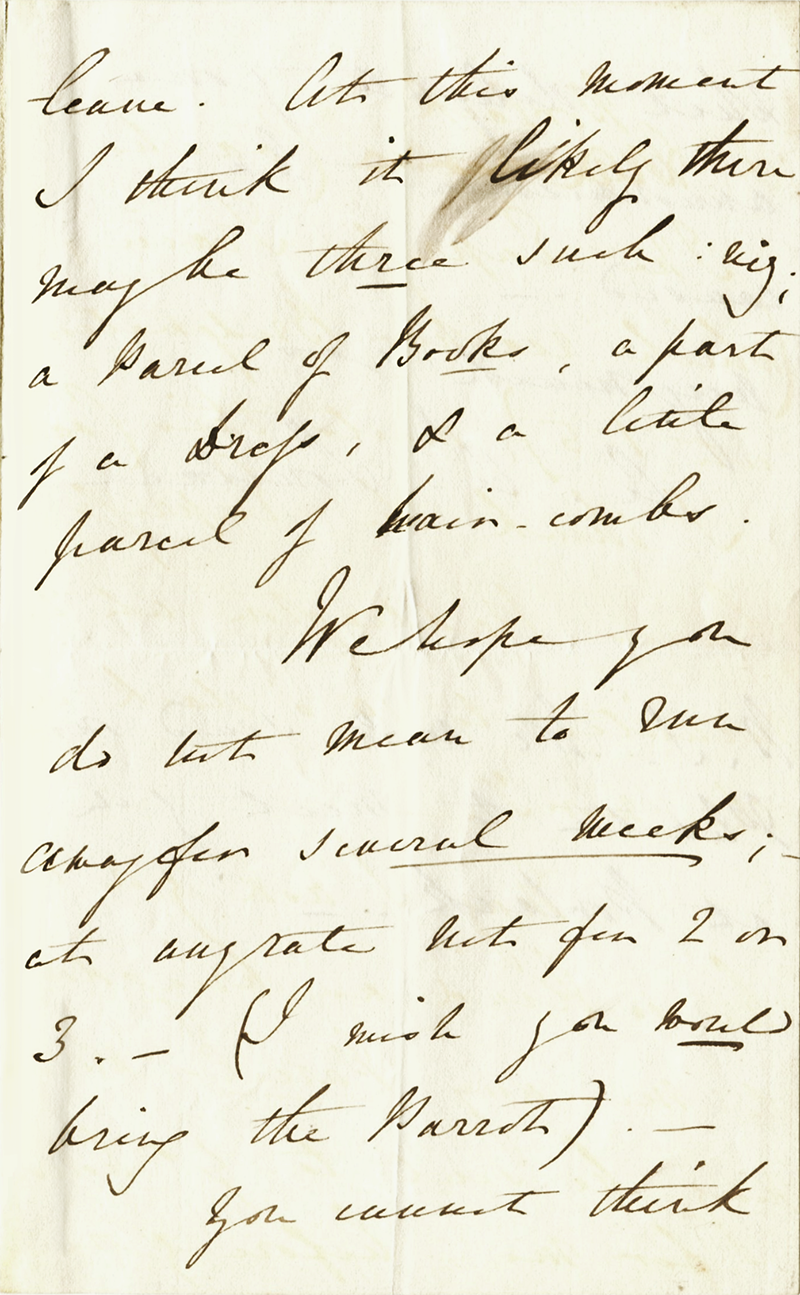 leave. At this moment
I think it likely there
may be three such: viz;
a Parcel of Books, a part
of a Dress, & a little
parcel of hair-combs.
We hope you
do not mean to run
away for several weeks; –
at any rate not for 2 or
3. – (I wish you would
bring the Parrot). –
You cannot think